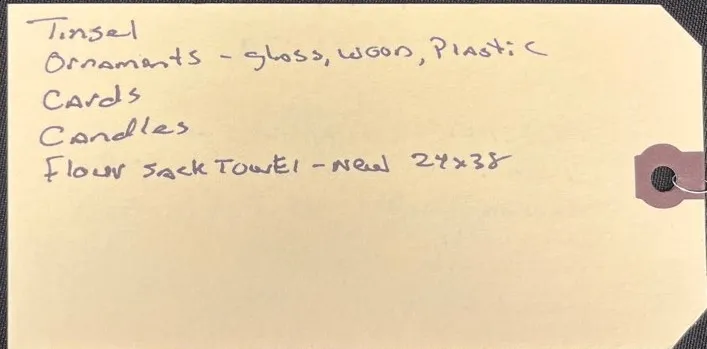 Tinsel
Ornaments - glass, wood, Plastic
Cards
Candles
Flour sack Towel - New 24x38